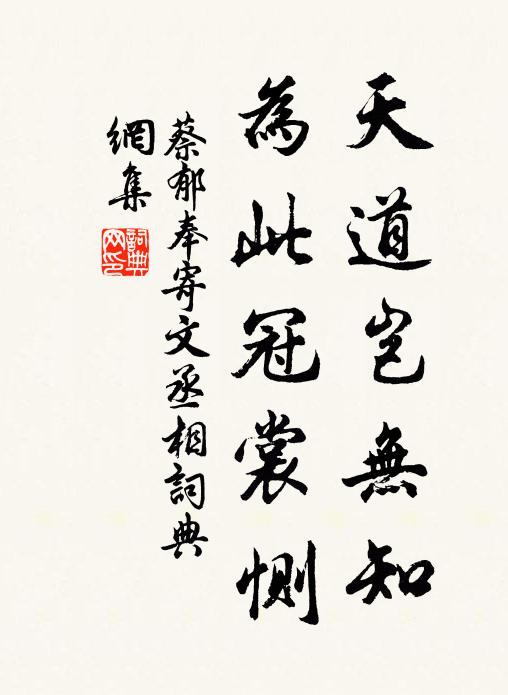 天道豈無知
為此冠裳惻
蔡郁奉寄文丞相詞典
網集
詞典
网印